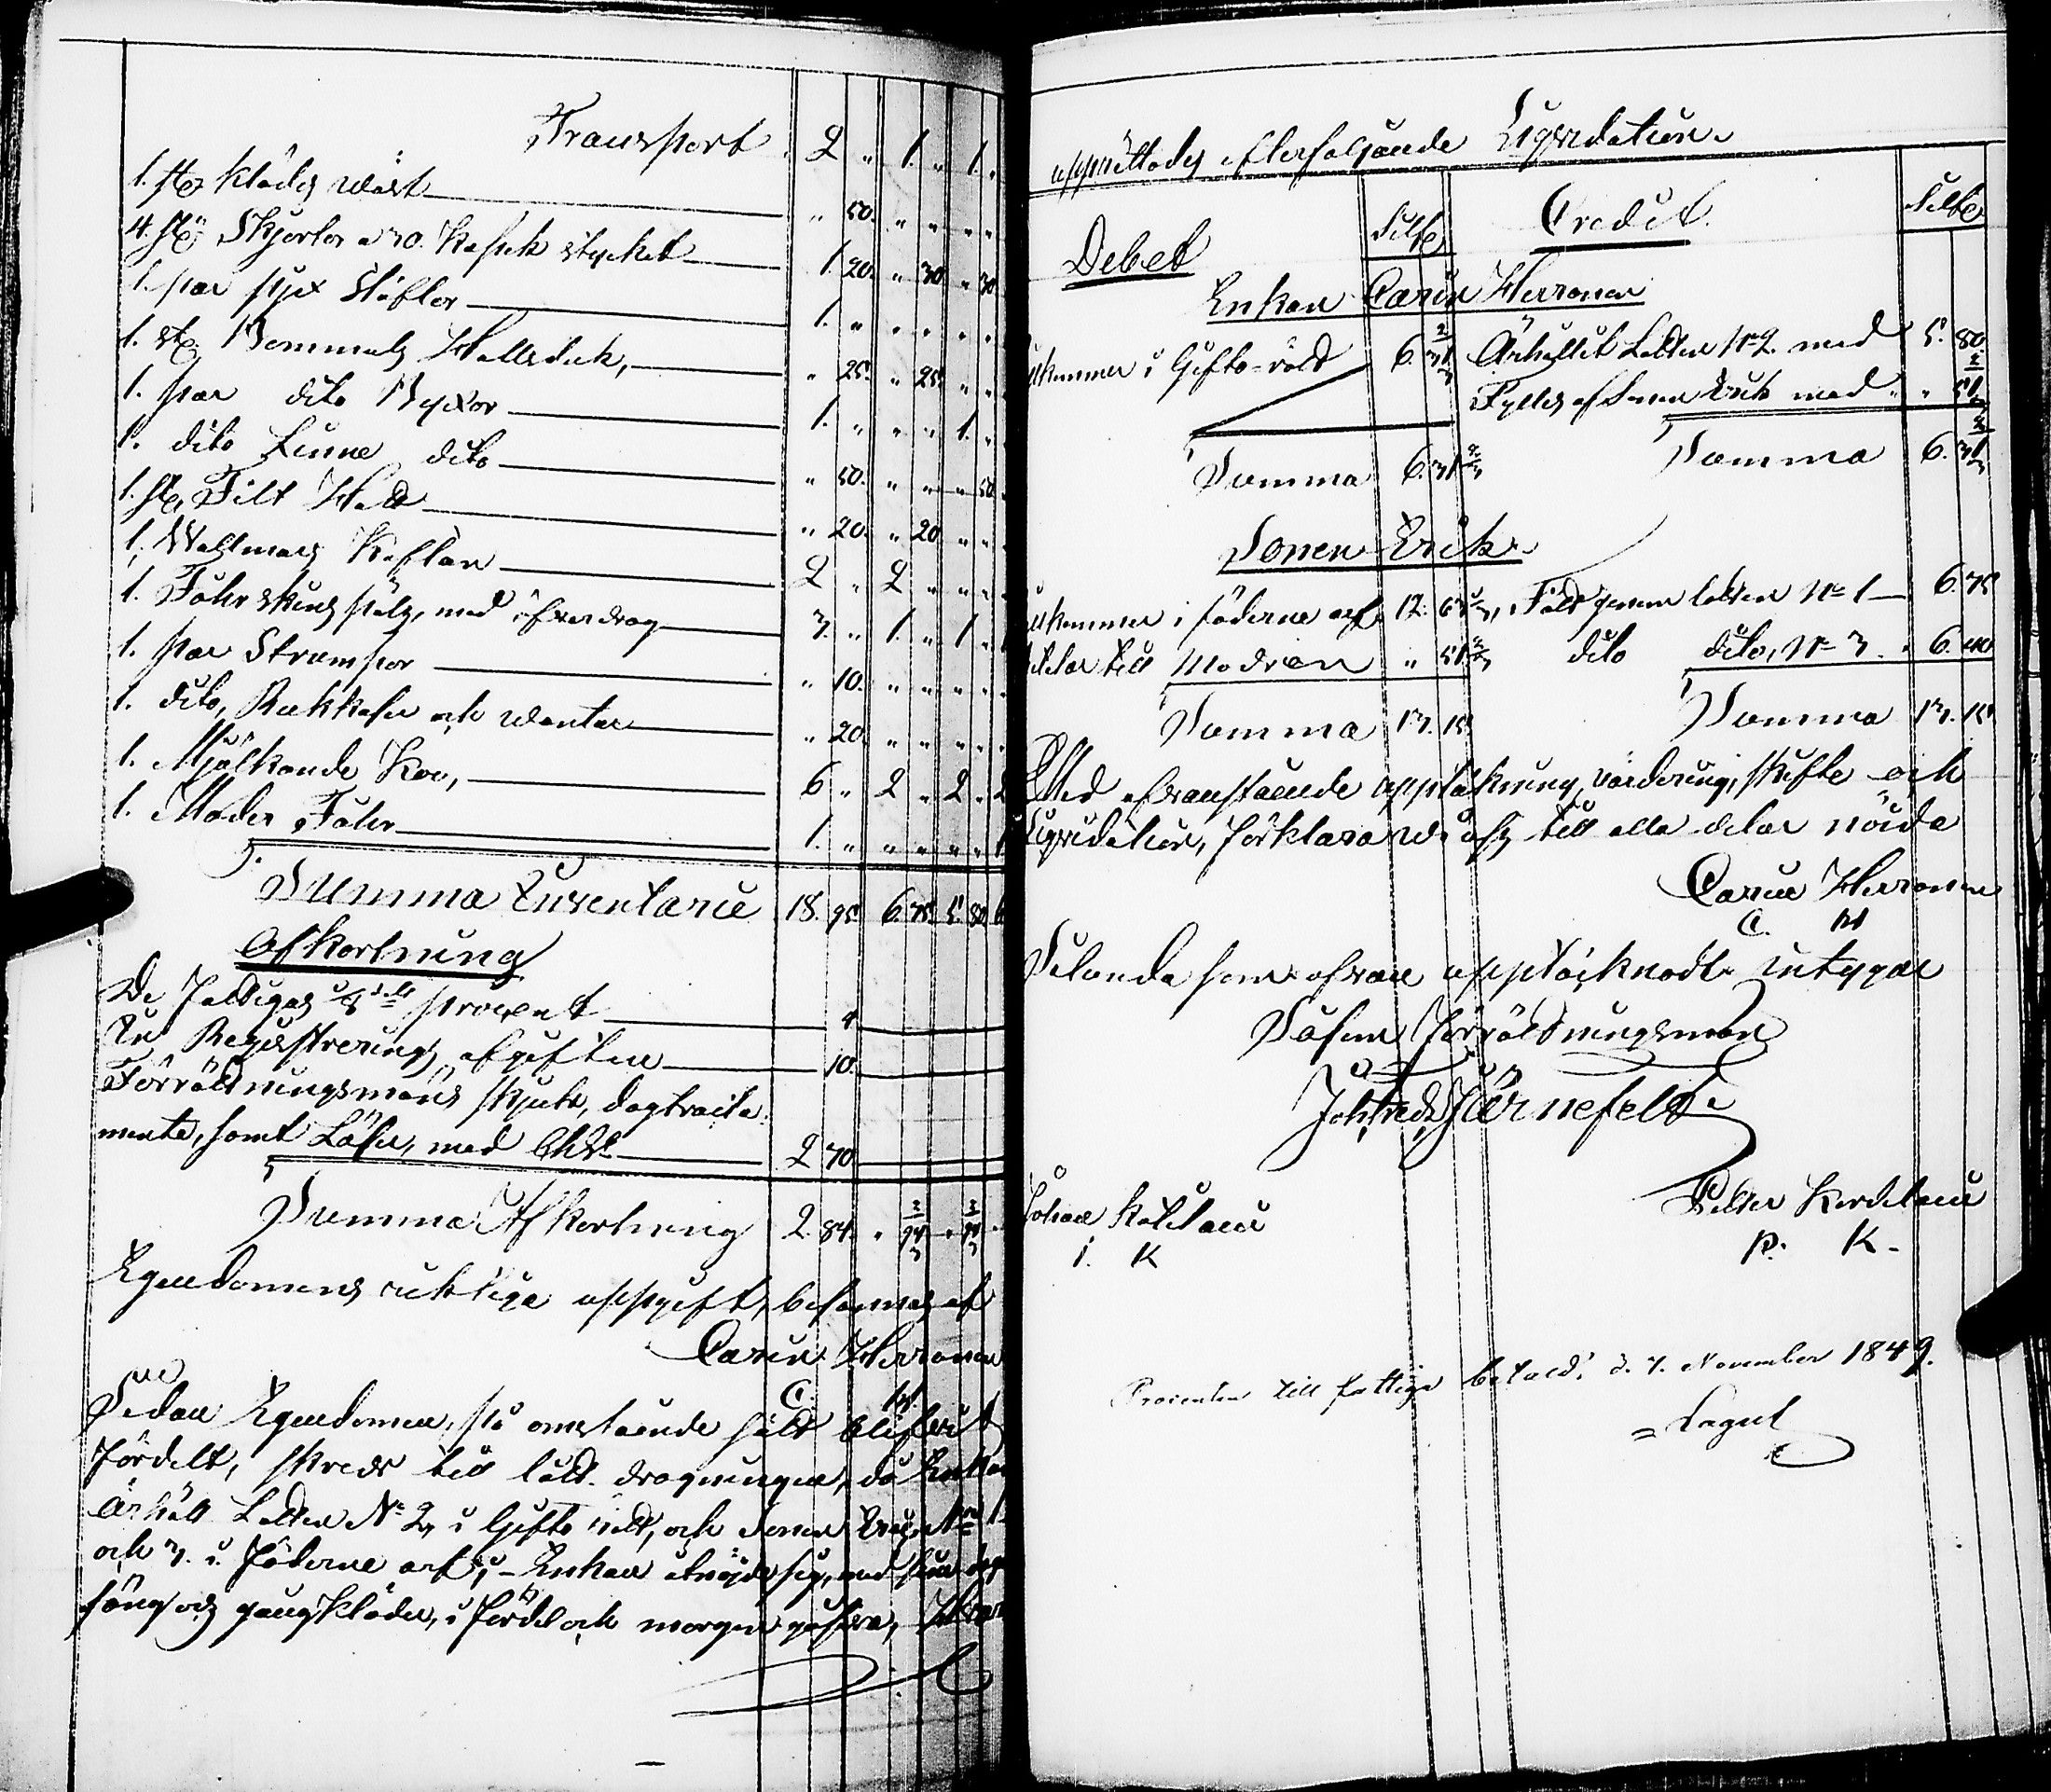 Transport 2 " 1. " 1. "
1. st: Klädes wäst " 50. " " " "
4. st: Skjortor a 30. Kopek stycket 1. 20. " 30 " 30
1. par Stöflor 1. " " " " "
1. st: Bommuls Halsduk, " 25. " 25. " "
1. par dito Byxor 1. " " " 1. "
1. dito Linne dito " 50. " " " 50
1. st: Filt Hatt " 20. " 20 " "
1. Wallmars Kaftan 2 " 2 " " "
1. Fåhrskins päls, med öfverdrag 3. " 1. " 1 "
1. par Strumpor " 10. " " " "
1. dito, och wantar " 20. " " " "
1. Mjölkande Koo, 6 " 2 " 2 " 2
1. Moder Fåhr 1. " " " " " 1
Summa Inventarie 18. 95 6. 75. 5. 80 6
Afkortning
De fattigas 1/8 procent 4
In Registrerings afgiften 10
Förrättningsmans skjuts, dagtracta
mente, samt Lösen, med 2 70
Summa Afkortning 2. 84. " 94 2/3 " 94 2/3
Egendomens riktiga uppgift, af
Carin Herronen
C. H
Sedan Egendomen, på omstående sätt blifvit
fördelt, skreds till lått dragningen, då Enkan
Ärhöll Lotten No 2, i Gifto rätt, och Sonen No 1
och 3. i Fäderne arf; Enkan åtnöjde sig, med
säng och gångkläder, i fördel och morgongåfva,
upprättades efterföljande Liqvidation.
Debet Silfr Credit. Silfr
Enkan Carin Herronen
i Gifto-rätt 6. 31 2/3 Ärhållit Lotten No 2. med 5. 80
Fylles af Sonen Erik med " 51 2/3
Summa 6. 31 2/3 Summa 6. 31 2/3
Sonen Erik
i fäderne arf 12. 63 1/3, Fått genom lotten No 1 6. 75
till Modren " 51 2/3 dito dito, No 3. 6. 40
Summa 13. 15 Summa 13. 15
Med ofvanstående uppteckning, värdering, skifte och
Liqvidation, förklara wi oss till alla delar nöida
Carin Herronen
C. H
Selunda som ofvan upptäcknadt intygar
förrättningsman
Joh: Fredr: Järnefelt
Johan
J. K
Petter
P. K.
Procenten till fattige betald: d. 7. November 1849.
= Lagus